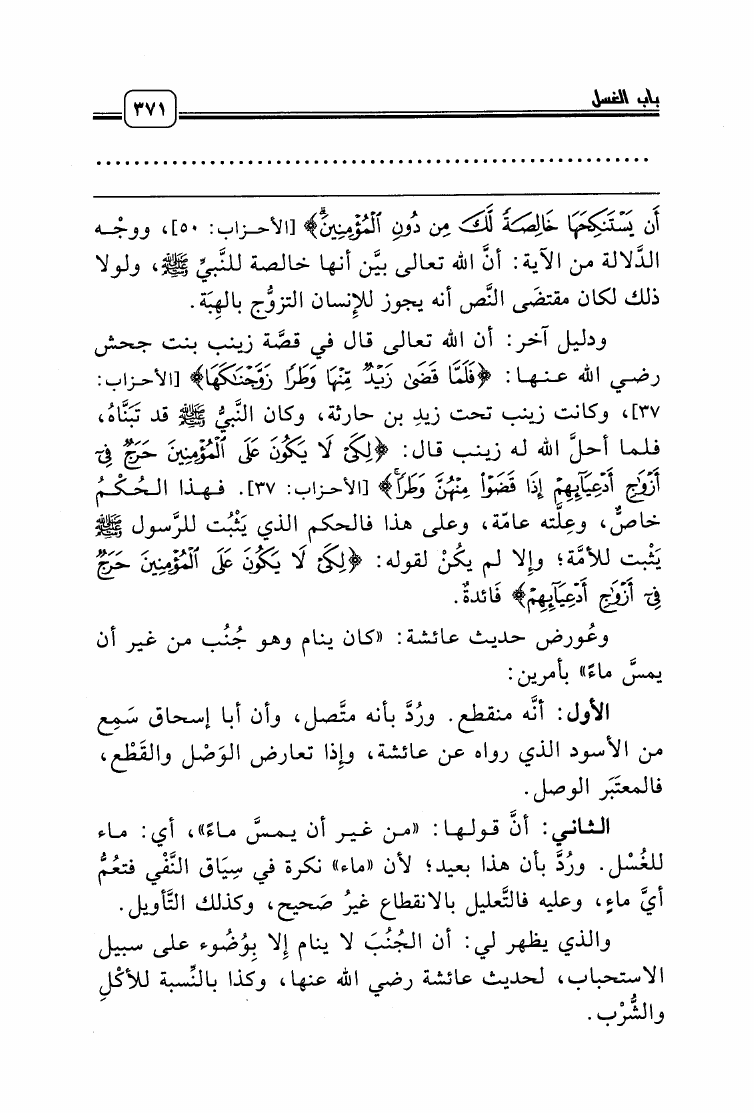 باب الغسل
٣٧١
أَن يَسْتَنكِحَهَا خَالِصَةً لَّكَ مِن دُونِ ٱلْمُؤْمِنِينَۗ﴾ [الأحـزاب: ٥٠]، ووجْـه
الدَّلالة من الآية: أنَّ الله تعالى بيَّن أنها خالصة للنَّبيِّ ﷺ، ولولا
ذلك لكان مقتضَى النَّص أنه يجوز للإنسان التزوُّج بالهِبَة.
ودليل آخر: أن الله تعالى قال في قصَّة زينب بنت جحش
رضـي الله عـنـهـا: ﴿فَلَمَّا قَضَىٰ زَيْدٌ مِّنْهَا وَطَرًا زَوَّجْنَٰكَهَا﴾ [الأحـزاب:
٣٧]، وكانت زينب تحت زيدِ بن حارثة، وكان النَّبيُّ ﷺ قد تبَنَّاهُ،
فـلـمـا أحـلَّ الله لـه زيـنـب قال: ﴿لِكَىْ لَا يَكُونَ عَلَى ٱلْمُؤْمِنِينَ حَرَجٌ فِىٓ
أَزْوَٰجِ أَدْعِيَآئِهِمْ إِذَا قَضَوْا۟ مِنْهُنَّ وَطَرًاۚ﴾ [الأحزاب: ٣٧]. فـهـذا الـحُـكْـمُ
خاصٌّ، وعِلَّته عامّة، وعلى هذا فالحكم الذي يَثْبُت للرَّسول ﷺ
يَثْبت للأمَّة؛ وإلا لم يكُنْ لقوله: ﴿لِكَىْ لَا يَكُونَ عَلَى ٱلْمُؤْمِنِينَ حَرَجٌ
فِىٓ أَزْوَٰجِ أَدْعِيَآئِهِمْ﴾ فَائدةٌ.
وعُورض حديث عائشة: «كان ينام وهو جُنُب من غير أن
يمسَّ ماءً» بأمرين:
الأول: أنَّه منقطع. ورُدَّ بأنه متَّصل، وأن أبا إسحاق سَمِع
من الأسود الذي رواه عن عائشة، وإذا تعارض الوَصْل والقَطْع،
فالمعتبَر الوصل.
الثـانـي: أنَّ قـولـهـا: «مـن غـيـر أن يـمـسَّ مـاءً»، أي: مـاء
للغُسْل. ورُدَّ بأن هذا بعيد؛ لأن «ماء» نكرة في سِيَاق النَّفْي فتعُمُّ
أيَّ ماءٍ، وعليه فالتَّعليل بالانقطاع غيرُ صَحيح، وكذلك التَّأويل.
والذي يظهر لي: أن الجُنُبَ لا ينام إلا بِوُضُوء على سبيل
الاستحباب، لحديث عائشة رضي الله عنها، وكذا بالنِّسبة للأكْلِ
والشُّرْب.